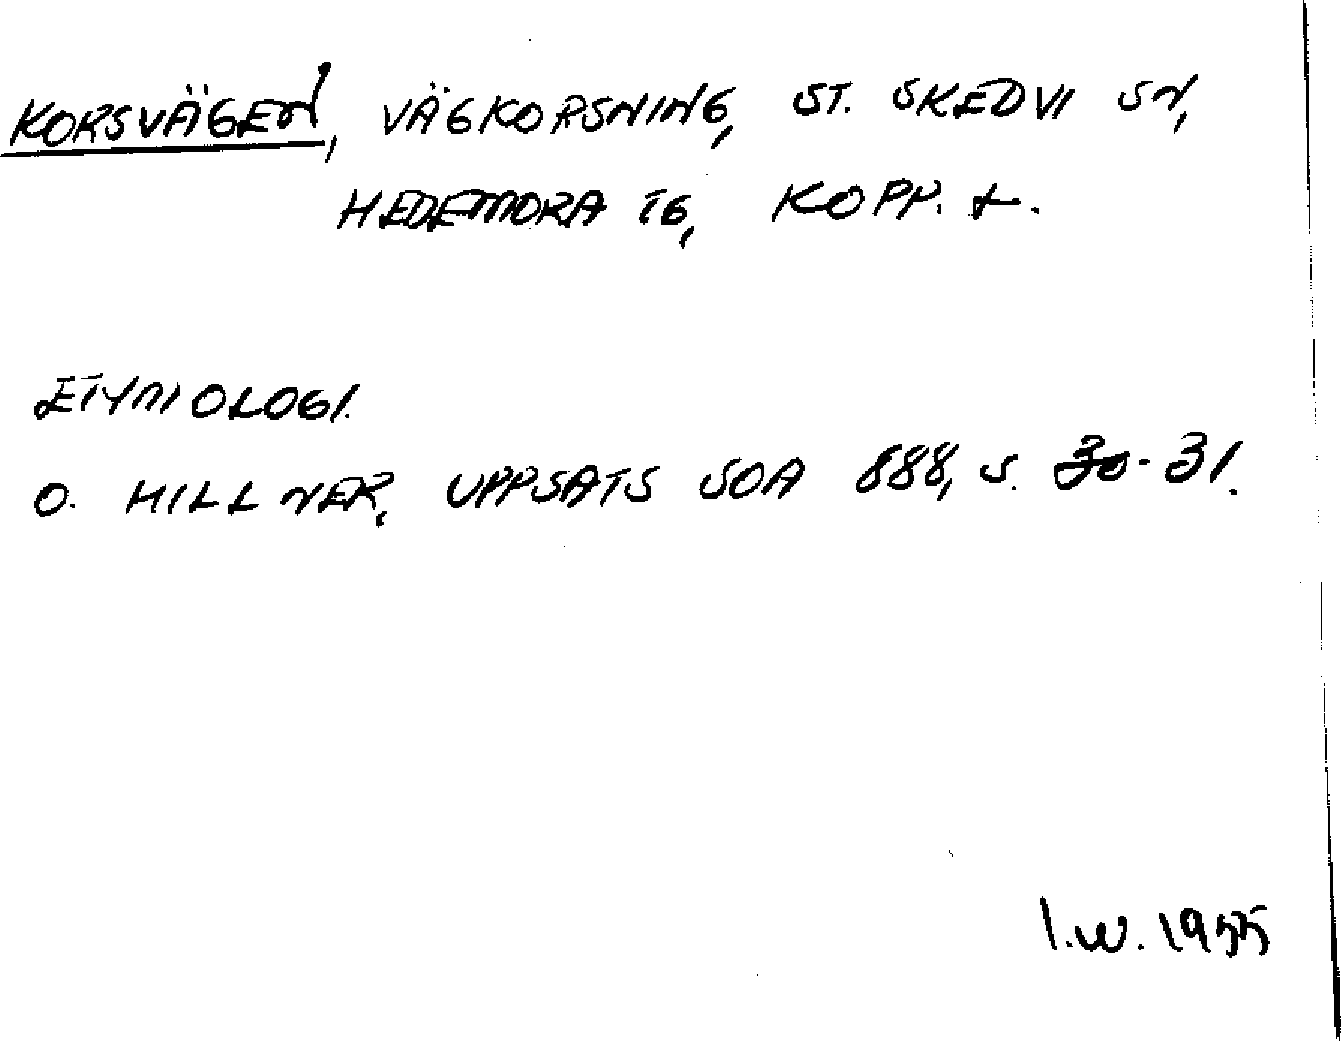 KORSVÄGEN, VÄGKORSNING, ST. SKEDVI SN,
HEDEMORA TG, KOPP. L.
ETYMOLOGI.
O. HILLNER, UPPSATS SOA 888, S. 30-31.
I.W. 1955